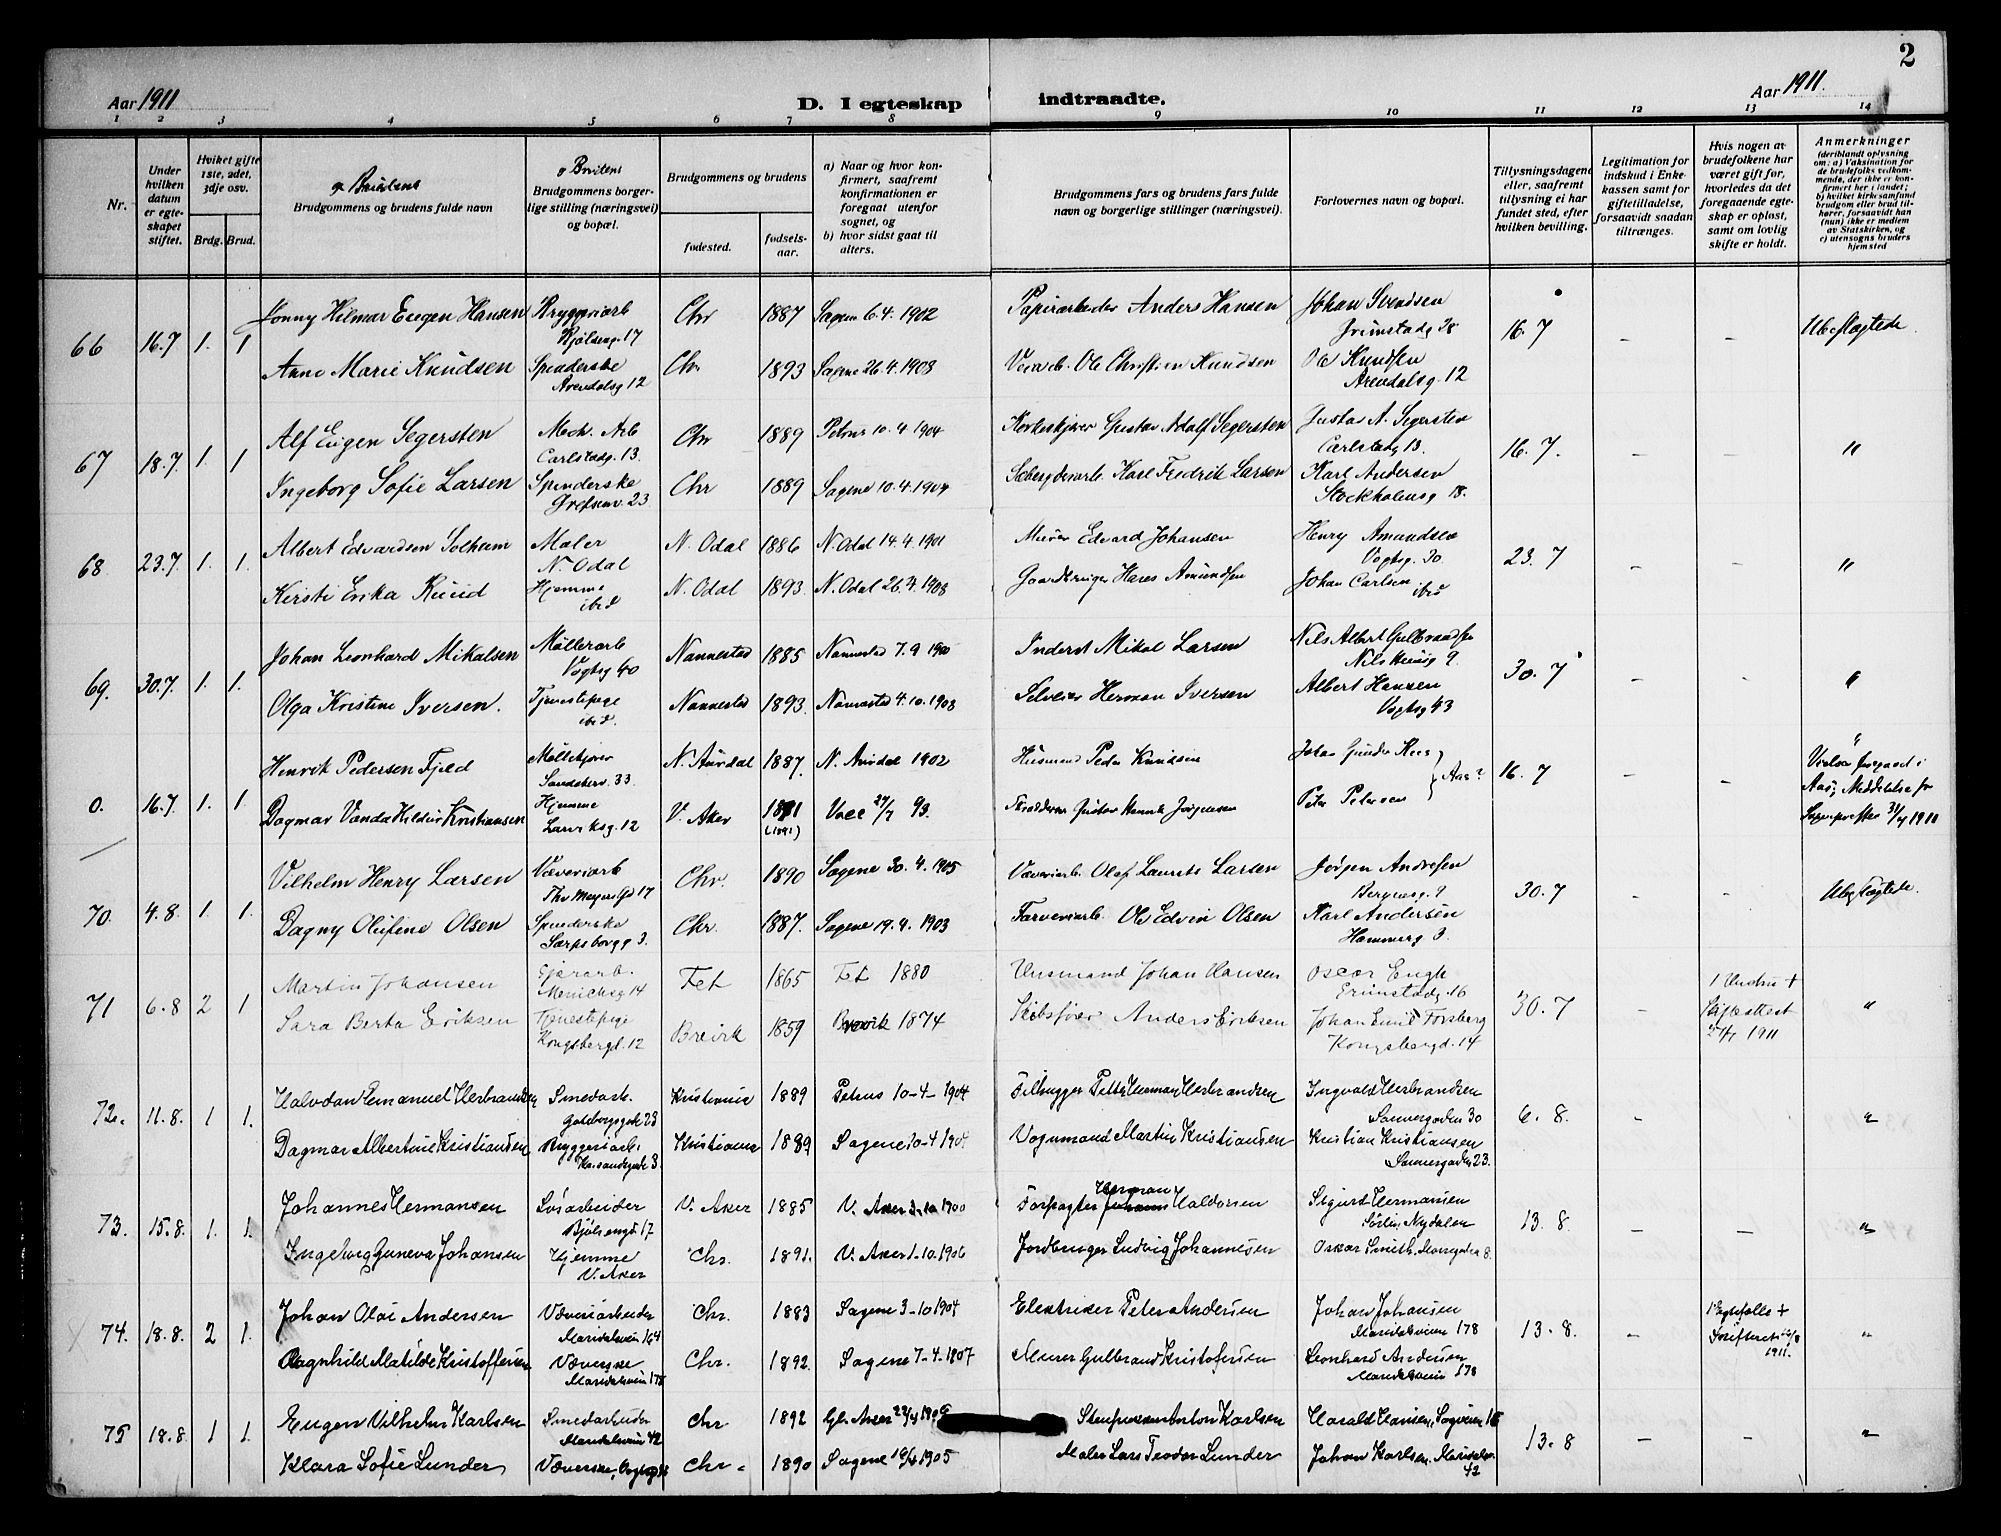 2
Aar 1911
D. I egteskap indtraadte.
Aar 1911.
1 2 3 4 5 6 7 8 9 10 11 12 13 14
Nr.
Under hvilken datum er egteskapet stiftet.
Hvilket gifte 1ste, 2det, 3dje osv.
Brdg. Brud.
Brudgommens og brudens fulde navn
Brudgommens borgerlige stilling (næringsvei) og bopæl.
Brudgommens og brudens
fødested.
fødselsaar.
a) Naar og hvor konfirmert, saafremt konfirmationen er foregaat utenfor sognet, og
b) hvor sidst gaat til alters.
Brudgommens fars og brudens fars fulde navn og borgerlige stillinger (næringsvei).
Forlovernes navn og bopæl.
Tillysningsdagene eller, saafremt tillysning ei har fundet sted, efter hvilken bevilling.
Legitimation for indskud i Enkekassen samt for giftetilladelse, forsaavidt saadan tiltrænges.
Hvis nogen av brudefolkene har været gift før, hvorledes da det foregaaende egteskap er opløst, samt om lovlig skifte er holdt.
Anmerkninger
(deriblandt oplysning om: a) Vaksination for de brudefolks vedkommende, der ikke er konfirmert her i landet; b) hvilket kirkesamfund brudgom eller brud tilhører, forsaavidt han (hun) ikke er medlem av Statskirken, og c) utensogns bruders hjemsted
66 16.7 1. 1 Jonny Hilmar Eugen Hansen Bryggeriarb Chr 1887 Sagene 6.4.1902 Papirarbeider Anders Hansen Johan Svendsen 16.7 - - Ubeslægtede
Bjølseng. 17 Grimstadg 28
Anne Marie Knudsen Spinderske Chr 1893 Sagene 26.4.1908 Ole Christian Knudsen Ole Knudsen
Arendalsg 12 Arendalsg. 12
67 18.7 1. 1 Alf Eugen Segersten Mech. Arb Chr 1889 Petrus 10.4.1904 Gustav Adolf Segersten Gustav A. Segersten 16.7. - - "
Carlstadg. 13. Carlstadg 13.
Ingeborg Sofie Larsen Spinderske Chr 1889 Sagene 10.4.1904 Karl Fredrik Larsen Karl Andersen
Grefsenv. 23 Stockholmsg 18.
68 23.7 1. 1. Albert Edvardsen Solheim Maler N. Odal 1886 N. Odal 14.4.1901 Murer Edvard Johansen Henry Amundsen 23.7 - - "
N. Odal Vogtsg. 30
Kirsti Erika Ruud Hjemme N. Odal 1893 N. Odal 26.4.1908 Gaardbruger Hans Amundsen Johan Carlsen
ibid ibid
69. 30.7. 1. 1. Johan Leonhard Mikalsen Møllerarb Nannestad 1885 Nannestad 7.9 1900 Inderst Mikal Larsen Nils Albert Gulbrandsen 30.7 - - "
Vogtsg 40 9
Olga Kristine Iversen. Tjenestepige Nannestad 1893 Nannestad 4.10.1908 Selveier Herman Iversen Albert Hansen
ibid. Vogtsg 43
0. 16.7. 1. 1. Henrik Pedersen Fjeld Møllekjører N. Aurdal 1887. N. Aurdal 1902 Husmand Peder Knudsen Johan 16.7 - - "
Sandakerv. 33 Aas? Vielse foregaaet i
Dagmar Vanda Hildur Kristiansen Hjemme V. Aker Peter Petersen Aas, Meddelse fr
Larviksg. 12 (1891) Sogneprесten 1911
70. 4.8. 1. 1. Vilhelm Henry Larsen Væveriarb Chr. 1890 Sagene 30.4.1905 Væveriarb. Olaf Laurits Larsen Jørgen Andresen 30.7 - - Ubeslægtede.
Thv Meyers Gd 17 Bergensg. 9
Dagny Olufine Olsen Spinderske Chr. 1887. Sagene 19.4.1903 Farveriarb. Ole Edvin Olsen Karl Andersen
Sarpsborgg 3. Hammerg 3.
71 6.8 2 1 Martin Johansen Fet 1865 Fet 1880 Husmand Johan Hansen Oscar Engh 30.7 - 1 Hustru + "
Menichsg 14 Grimstadg. 16 Skifteattest
Sara Berta Eriksen Tjenestepige Breivik 1859 Brevik 1874 Skibsfører Anders Eriksen Johan Emil Forsberg 1911
Kongsbergd. 12 Kongsbergd. 14
72. 11.8. 1 1. Halvdan Emanuel Herbrandsen Smedarb. Kristiania 1889 Petrus 10-4-1904 Filhugger Petter Herman Herbrandsen Ingvald Herbrandsen 6.8. - "
Gøteborgsgate 23 Sannergaden 30
Dagmar Albertine Kristiansen Bryggeriarb. Kristiania 1889 Sagene 10-4 190 Vognmand Martin Kristiansen Kristian Kristiansen
Sannergaden 23.
73. 15.8. 1. 1. Johannes Hermansen Løsarbeider V. Aker 1885 V. Aker 3.10.1900 Forpagter Herman Haldorsen Sigurd Hermansen 13.8. - - "
Bjølsengd 17 Nydalen
Ingeborg Guneva Johansen Hjemme Chr. 1891. V. Aker 1-10.1906 Jordbruger Ludvig Johannesen Oskar Smith, 8.
V. Aker
74. 18.8. 2 1. Johan Olai Andersen Væveriarbeider Chr. 1883 Sagene 3-10 1904 Elektriker Peter Andersen Johan Johansen 13-8. - 1 Egtefælle + "
Maridalsveien 164 Maridalsveien 178 Skifteret
Ragnhild Matilde Kristoffersen Væverske Chr. 1892. Sagene 7-4-1907 Murer Gulbrand Kristofersen Leonhard Andersen 1911.
Maridalsveien 178 Maridalsveien 178
75 18.8. 1 1. Eugen Vilhelm Karlsen Smedarbeider Chr 1892 Gl. Aker Anton Karlsen Harald Hansen, Sagveien 13.8 - - "
Maridalsveien 42
Klara Sofie Lunder Væverske, Chr. 1890 Sagene 1905 Maler Lars Teodor Lunder Johan Karlsen, Maridalsv.
42